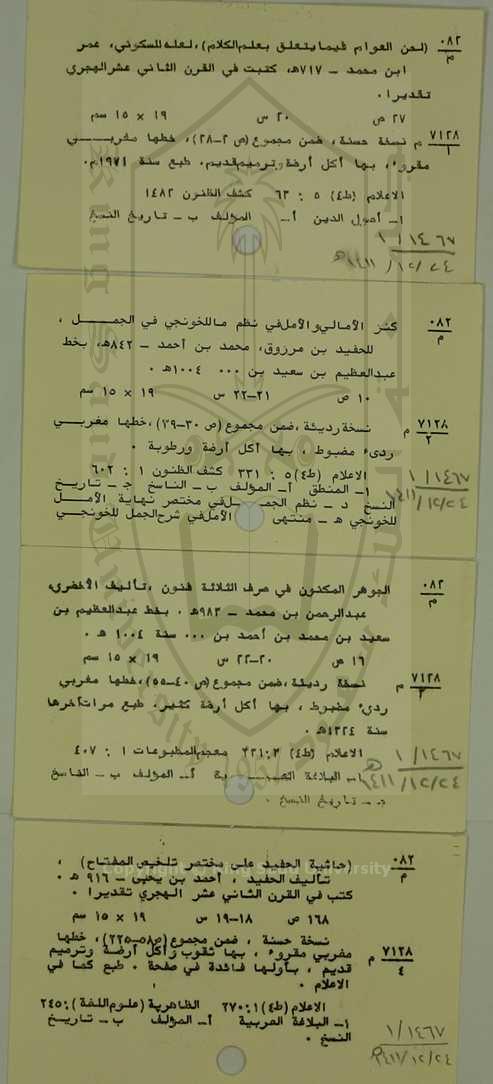 ٠٨٢
م
(لحن العوام فيما يتعلق بعلم الكلام)، لعله للسكوني، عمر
ابن محمد – ٧١٧هـ، كتبت في القرن الثاني عشر الهجري
تقديرا.
٢٧ ص ٢٠ س ١٩ × ١٥ سم
٧١٢٨
١
م نسخة حسنة، ضمن مجموع (ص ٢–٢٨)، خطها مغربي
مقروء، بها أكل أرضة وترميم قديم. طبع سنة ١٩٧١م.
الاعلام (ط٤) ٥ : ٦٣ كشف الظنون ١٤٨٢
١– أصول الدين أ– المؤلف ب – تاريخ النسخ
١/١٤٦٧
١٤١١/١٢/٢٤هـ
٠٨٢
م
كنز الأماني والأمل في نظم ما للخونجي في الجمل ،
للحفيد بن مرزوق، محمد بن أحمد – ٨٤٢هـ، بخط
عبدالعظيم بن سعيد بن ... ١٠٠٤هـ .
١٠ ص ٢١–٢٢ س ١٩ × ١٥ سم
٧١٢٨
٢
م نسخة رديئة ،ضمن مجموع (ص ٣٠–٣٩)،خطها مغربي
ردىء مضبوط ، بها أكل أرضة ورطوبة .
الاعلام (ط٤) ٥ : ٣٣١ كشف الظنون ١ : ٦٠٢
١– المنطق أ– المؤلف ب – الناسخ ج – تاريخ
النسخ د – نظم الجمل في مختصر نهاية الأمل
للخونجي هـ – منتهى الأمل في شرح الجمل للخونجي
١/١٤٦٧
١٤١١/١٢/٢٤
٠٨٢
م
الجوهر المكنون في صرف الثلاثة فنون ،تأليف الأخضري،
عبدالرحمن بن محمد – ٩٨٣هـ . بخط عبدالعظيم بن
سعيد بن محمد بن أحمد بن ... سنة ١٠٠٤ هـ .
١٦ ص ٢٠–٢٢ س ١٩ × ١٥ سم
٧١٢٨
٣
م نسخة رديئة ،ضمن مجموع (ص ٤٠–٥٥)،خطها مغربي
ردىء مضبوط ، بها أكل أرضة كثير. طبع مرات آخرها
سنة ١٣٢٤هـ.
الاعلام (ط٤) ٣٣١:٣ معجم المطبوعات ١ : ٤٠٧
١– البلاغة العربية أ– المؤلف ب – الناسخ
ج – تاريخ النسخ .
١/١٤٦٧
١٤١١/١٢/٢٤هـ
٠٨٢
م
(حاشية الحفيد على مختصر تلخيص المفتاح) ،
تأليف الحفيد ، أحمد بن يحيى – ٩١٦ هـ .
كتب في القرن الثاني عشر الهجري تقديرا .
١٦٨ ص ١٨–١٩ س ١٩ × ١٥ سم
٧١٢٨
٤
م نسخة حسنة ، ضمن مجموع (ص٥٨–٢٢٥)، خطها
مغربي مقروء ، بها ثقوب وأكل أرضة وترميم
قديم ، بأولها فائدة في صفحة . طبع كما في
الاعلام .
الاعلام (ط٤) ٢٧٠:١ الظاهرية (علوم اللغة): ٢٤٥
١– البلاغة العربية أ– المؤلف ب – تاريخ
النسخ .
١/١٤٦٧
١٤١١/١٢/٢٤هـ